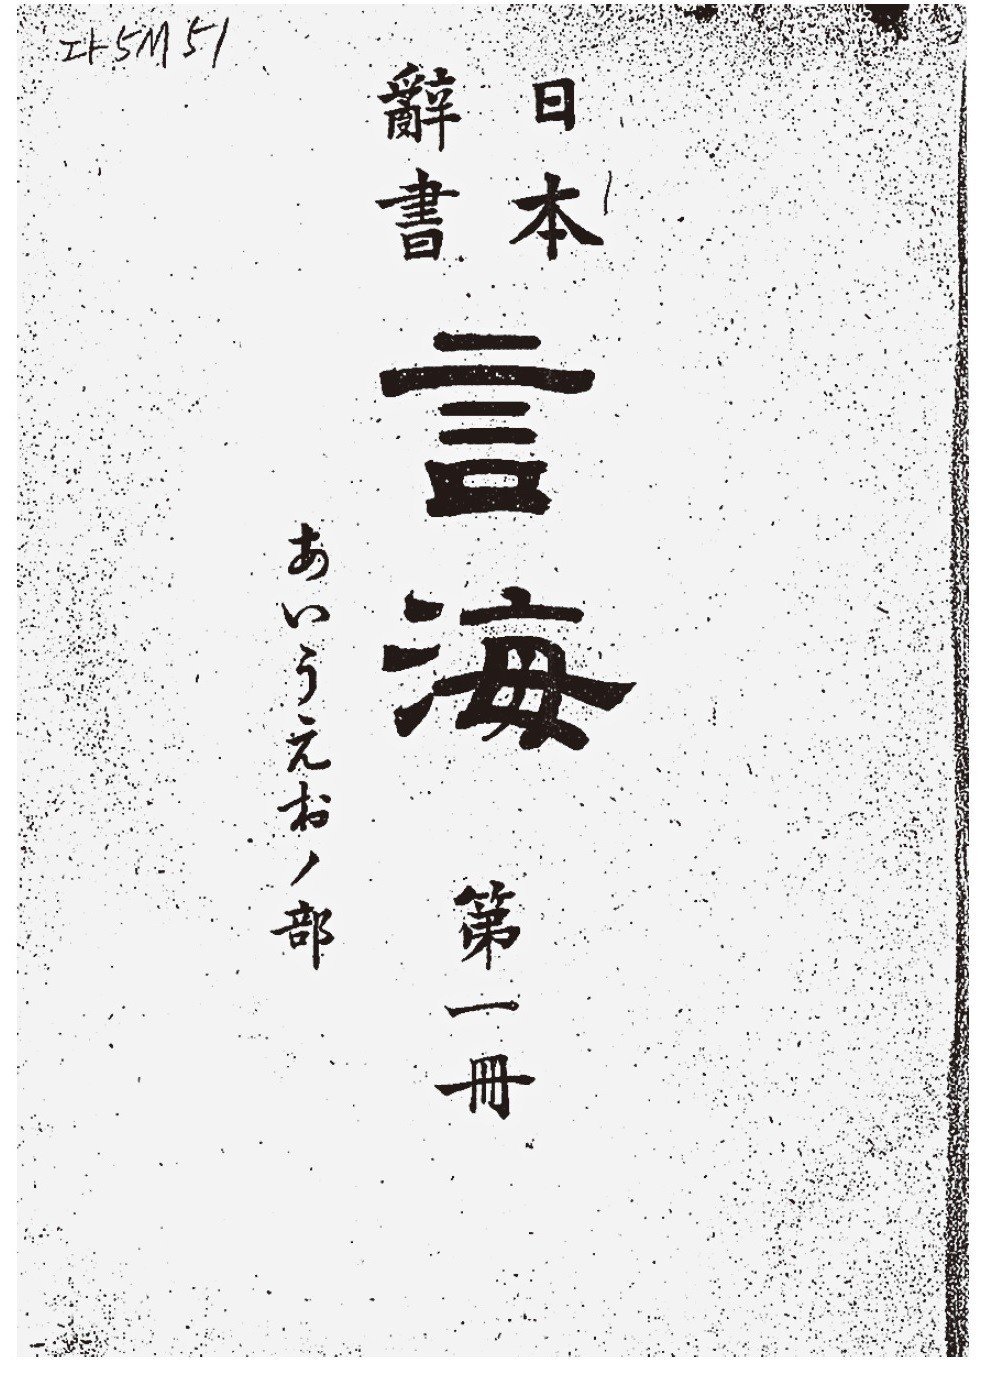 다5M51
日本
辭書
言海 第一冊
あいうえおノ部